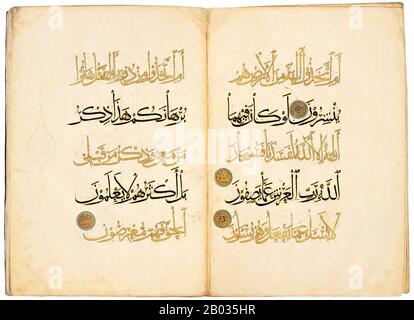 أم اتخذوا آلهة من الأرض هم
ينشرون لو كان فيهما
آلهة إلا الله لفسدتا فسبحان
الله رب العرش عما يصفون
لا يسأل عما يفعل وهم يسألون
أم اتخذوا من دونه آلهة قل هاتوا
برهانكم هذا ذكر
من معي وذكر من قبلي
بل أكثرهم لا يعلمون
الحق فهم معرضون
alamy
Image ID: 2B035HR
www.alamy.com